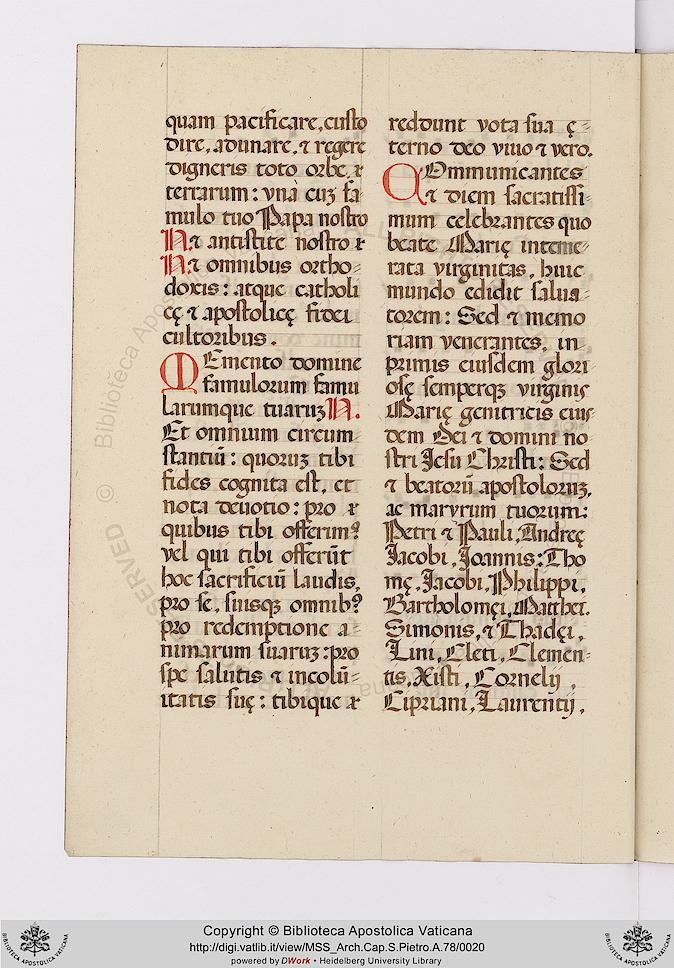 quam pacificare, custo
dire, adunare, ⁊ regere
digneris toto orbe, ⁊
terrarum: vna cuʒ fa
mulo tuo Papa nostro
N. ⁊ antistite nostro ⁊
N. ⁊ omnibus ortho-
doxis: atque catholi
cę ⁊ apostolicę fidei
cultoribus.
MEmento domine
famulorum famu
larumque tuaruʒ N.
Et omnium circum-
stantiũ: quoruʒ tibi
fides cognita est, et
nota deuotio: pro ⁊
quibus tibi offerim?
vel qui tibi offerũt
hoc sacrificiũ laudis,
pro se, suisqʒ omnib?
pro redemptione a-
nimarum suaruʒ: pro
spe salutis ⁊ incolũ-
itatis suę: tibique ⁊
reddunt vota sua ę-
terno deo viuo ⁊ vero.
COmmunicantes
⁊ diem sacratissi-
mum celebrantes quo
beate Marię inteme-
rata virginitas, huic
mundo edidit salua-
torem: Sed ⁊ memo
riam venerantes, in-
primis eiusdem glori-
osę semperqʒ virginis
Marię genitricis eius-
dem Dei ⁊ domini no-
stri Jesu Christi: Sed
⁊ beatorũ apostoloruʒ,
ac maryrum tuorum:
Petri ⁊ Pauli, Andreę
Jacobi, Joannis: Tho
mę, Jacobi, Philippi,
Bartholomęi, Matthei.
Simonis, ⁊ Thadęi,
Lini, Cleti, Clemen-
tis, Xisti, Cornelij,
Cipriani, Laurentij,
Copyright © Biblioteca Apostolica Vaticana
http://digi.vatlib.it/view/MSS_Arch.Cap.S.Pietro.A.78/0020
powered by DWork • Heidelberg University Library